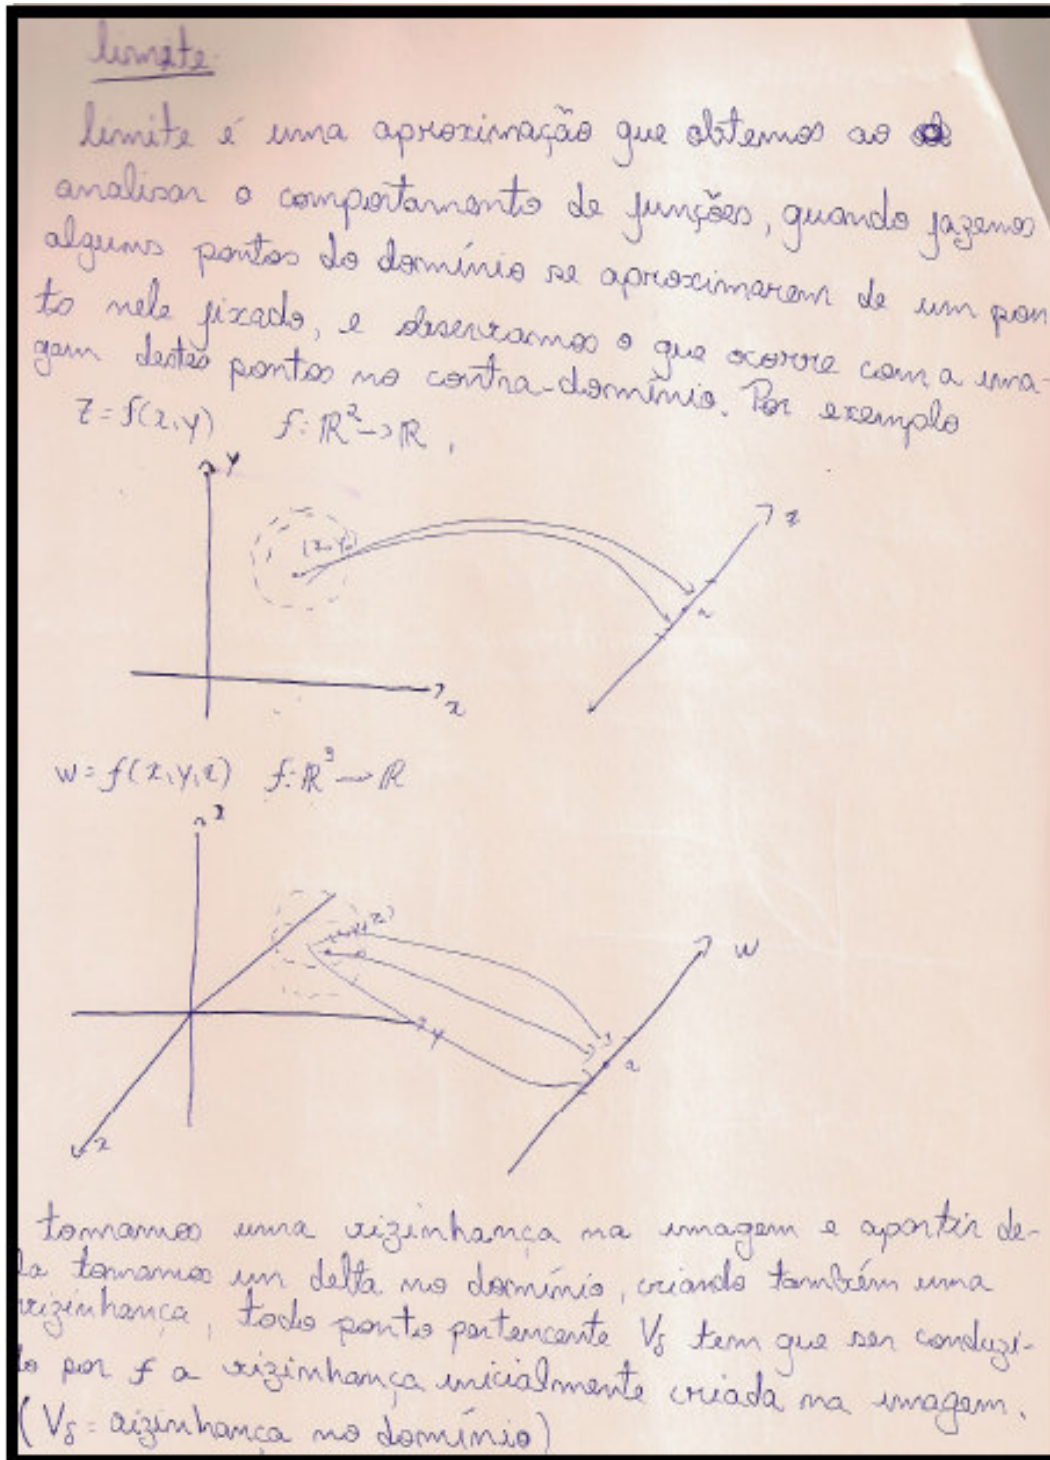 limite
limite é uma aproximação que obtemos ao
analisar o comportamento de funções, quando fazemos
alguns pontos do domínio se aproximarem de um pon
to nele fixado, e observamos o que ocorre com a ima-
gem destes pontos no contra-domínio. Por exemplo
z = f(x,y) f: R² → R,
y
(x,y)
z
a
x
w = f(x,y,z) f: R³ → R
z
(x,y,z)
w
y
a
x
tomamos uma vizinhança na imagem e apartir de-
la tomamos um delta no domínio, criando também uma
vizinhança, todo ponto pertencente Vδ tem que ser conduzi-
do por f a vizinhança inicialmente criada na imagem.
(Vδ = vizinhança no domínio)